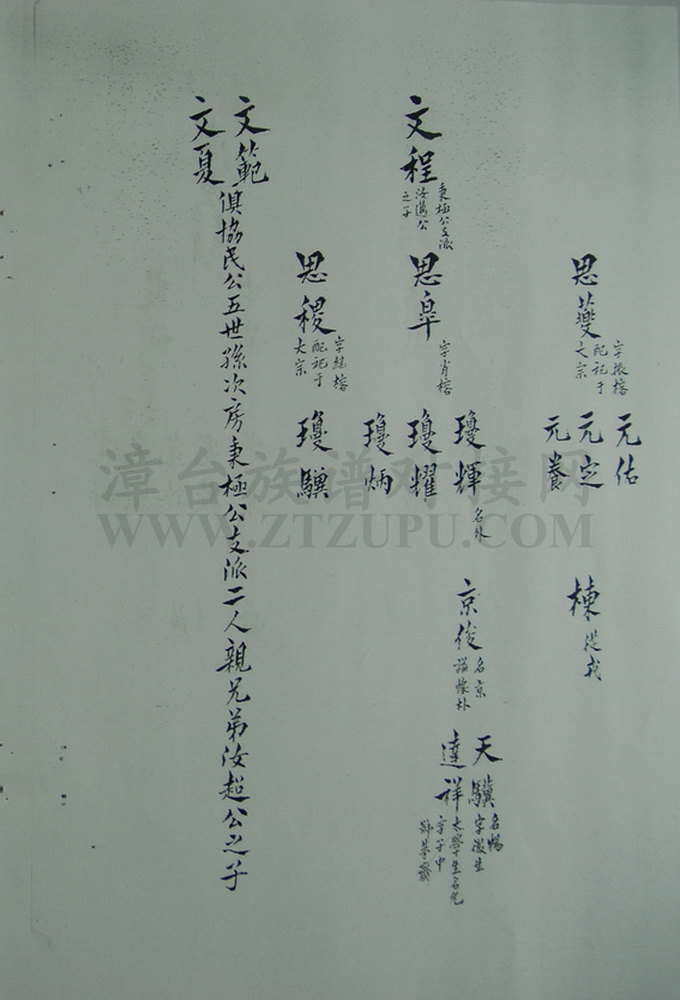 思夔
字振榕
配祀于
大宗
元佑
元定
元養
棟
從戎
文程
秉極公支派
汝邁公
之子
思皐
字肖榕
瓊輝
名外
瓊耀
瓊炳
京俊
名京
諡懷朴
天驥
名暢
字徵生
達祥
太學生名光
字子中
思稷
字繼榕
配祀于
大宗
瓊驥
文範
文夏
俱協民公五世孫次房秉極公支派二人親兄弟汝超公之子
漳台族谱对接网
WWW.ZTZUPU.COM